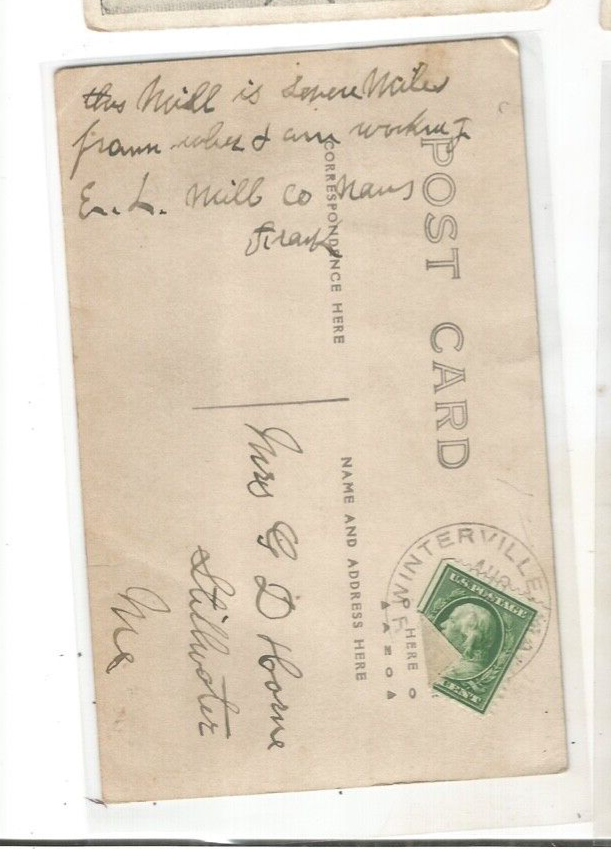 this Mill is Seven Miles
from wher I am workng
E. L. Mill Co Haus
Frank
POST CARD
CORRESPONDENCE HERE
NAME AND ADDRESS HERE
Mrs G D Horne
Stillwater
Me
WINTERVILLE
AUG
U.S. POSTAGE
HERE
AZO